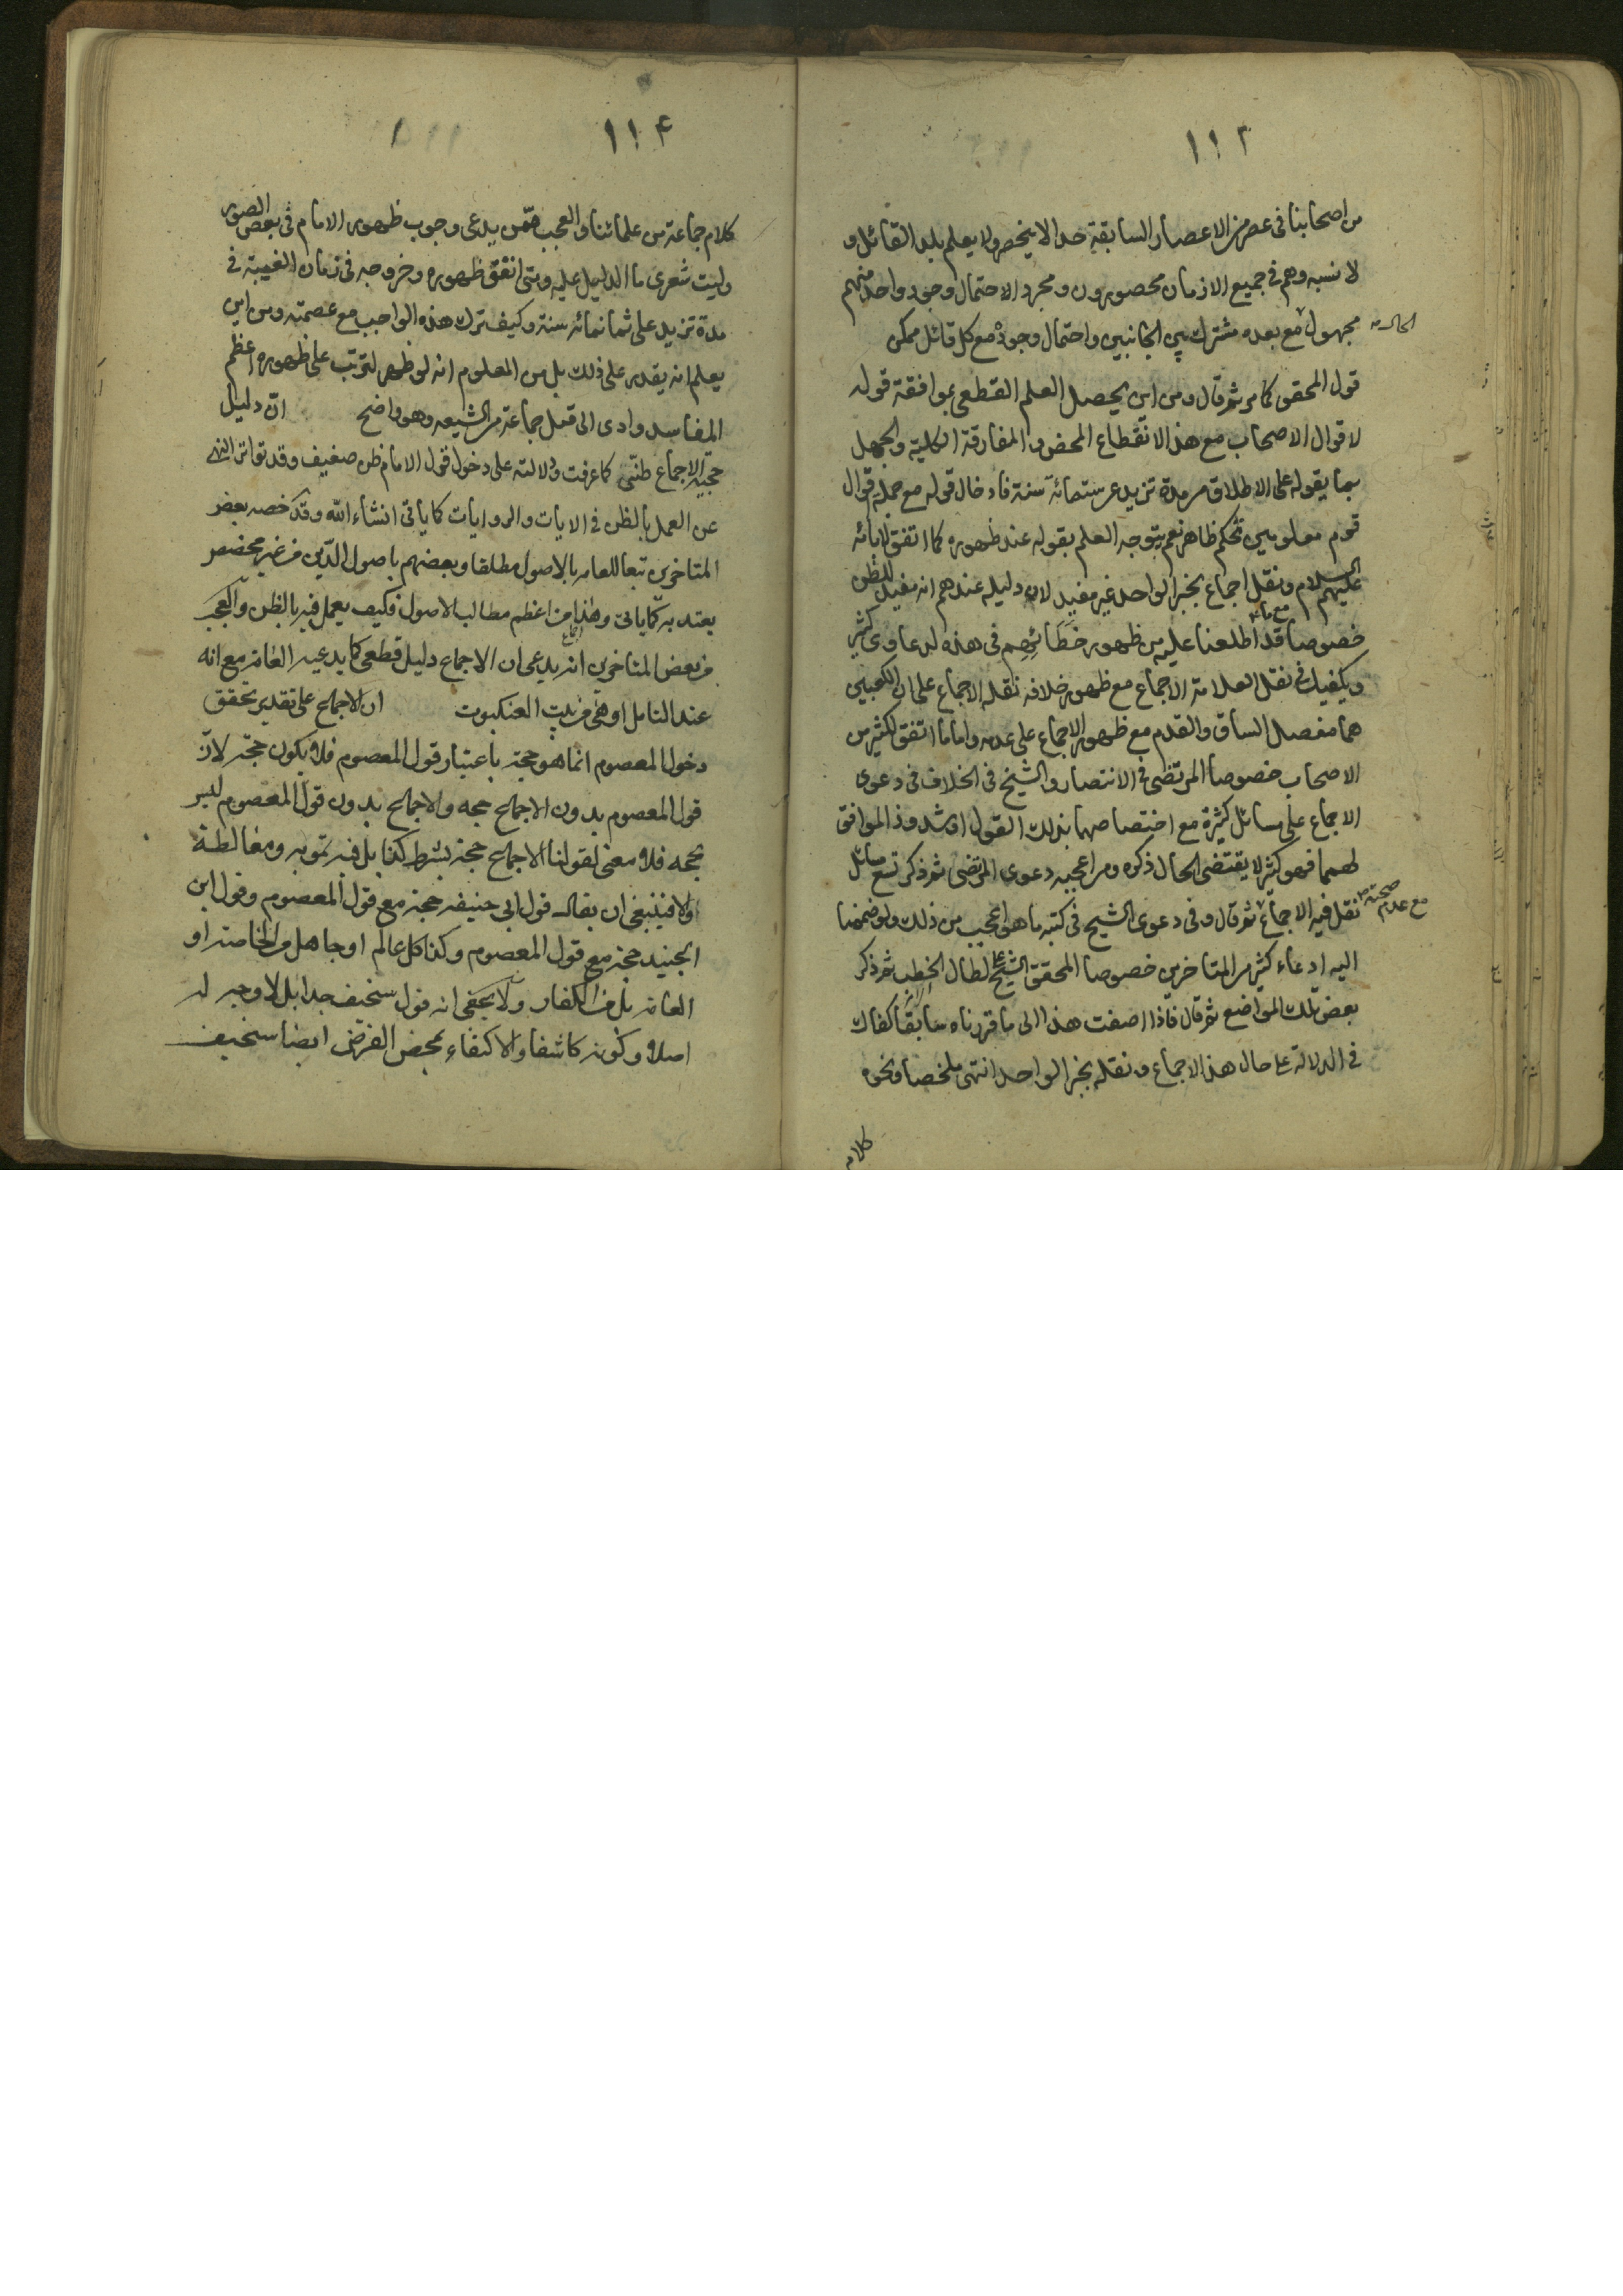 ١١٣
من اصحابنا فى عصر من الاعصار السابقة حد الا ينحصر ولا يعلم بلد القائل و
لا نسبه وهم فى جميع الازمان محصورون ومجرد الاحتمال وجود واحد منهم
مجهول مع بعده مشترك بين الجانبين واحتمال وجوده مع كل قائل ممكن
قول المحقق كما مر ثم قال ومن اين يحصل العلم القطعى بموافقة قوله
لاقوال الاصحاب مع هذا الانقطاع المحض والمفارقة الكلية والجهل
بما يقوله على الاطلاق من مدة تزيد عن ستمائة سنة فادخال قوله مع جملة اقوال
قوم معلومين تحكم ظاهر نعم يتوجه العلم بقوله عند ظهوره كما اتفق لابائه
عليهم السلام ونقل اجماع بخبر الواحد غير مفيد لان دليله عندهم انه مفيد للظن
خصوصا مع ما قد اطلعنا عليه من ظهور خطائهم فى هذه الدعاوى كثير
ويكفيك فى نقل العلامة الاجماع مع ظهور خلافه نقله الاجماع على ان الكعبين
هما مفصل الساق والقدم مع ظهور الاجماع على عدمه واما ما اتفق لكثير من
الاصحاب خصوصا المرتضى فى الانتصار والشيخ فى الخلاف فى دعوى
الاجماع على مسائل كثيرة مع اختصاصهما بذلك القول او شذوذ الموافق
لهما فهو كثير لا يقتضى الحال ذكره ومن اعجبه دعوى المرتضى ثم ذكر تسع مسائل
نقل فيه الاجماع مع عدم صحته ثم قال وفى دعوى الشيخ فى كتبه ما هو اعجب من ذلك ولو ضممنا
اليه ادعاء كثير من المتاخرين خصوصا المحقق الشيخ على لطال الخطب ثم ذكر
بعض تلك المواضع ثم قال فاذا اضفت هذا الى ما قررناه سابقا كفاك
فى الدلالة على حال هذا الاجماع ونقله بخبر الواحد انتهى ملخصا ونحوه
كلام
١١٤
كلام جماعة من علمائنا والعجب ممن يدعى وجوب ظهور الامام فى بعض الصور
وليت شعرى ما الدليل عليه ومتى اتفق ظهوره وخروجه فى زمان الغيبة فى
مدة تزيد على ثمانمائة سنة وكيف ترك هذه الواجب مع عصمته ومن اين
يعلم انه يقدر على ذلك بل من المعلوم انه لو ظهر لترتب على ظهوره اعظم
المفاسد وادى الى قتل جماعة من الشيعه وهو واضح ان دليل
حجية الاجماع ظنى كما عرفت ودلالته على دخول قول الامام ظن ضعيف وقد تواتر النهى
عن العمل بالظن فى الايات والروايات كما ياتى انشاء الله وقد خصه بعض
المتاخرين تبعا للعامة بالاصول مطلقا وبعضهم باصول الدين من غير مخصص
يعتد به كما ياتى وهذا من اعظم مطالب الاصول فكيف يعمل فيه بالظن والعجب
من بعض المتاخرين انه يدعى ان الاجماع دليل قطعى كما يدعيه العامة مع انه
عند التامل اوهى من بيت العنكبوت ان الاجماع على تقدير تحقق
دخول المعصوم انما هو حجة باعتبار قول المعصوم فلا يكون حجة لان
قول المعصوم بدون الاجماع حجه والاجماع بدون قول المعصوم ليس
بحجه فلا معنى لقولنا الاجماع حجة بشرط كذا بل فيه تمويه ومغالطة
والا فينبغى ان يقال قول ابى حنيفه حجة مع قول المعصوم وقول ابن
الجنيد حجة مع قول المعصوم وكذا كل عالم او جاهل من الخاصة او
العامة بل من الكفار ولا يخفى انه قول سخيف جدا بل لا وجه له
اصلا وكونه كاشفا والاكتفاء بمحض الفرض ايضا سخيف